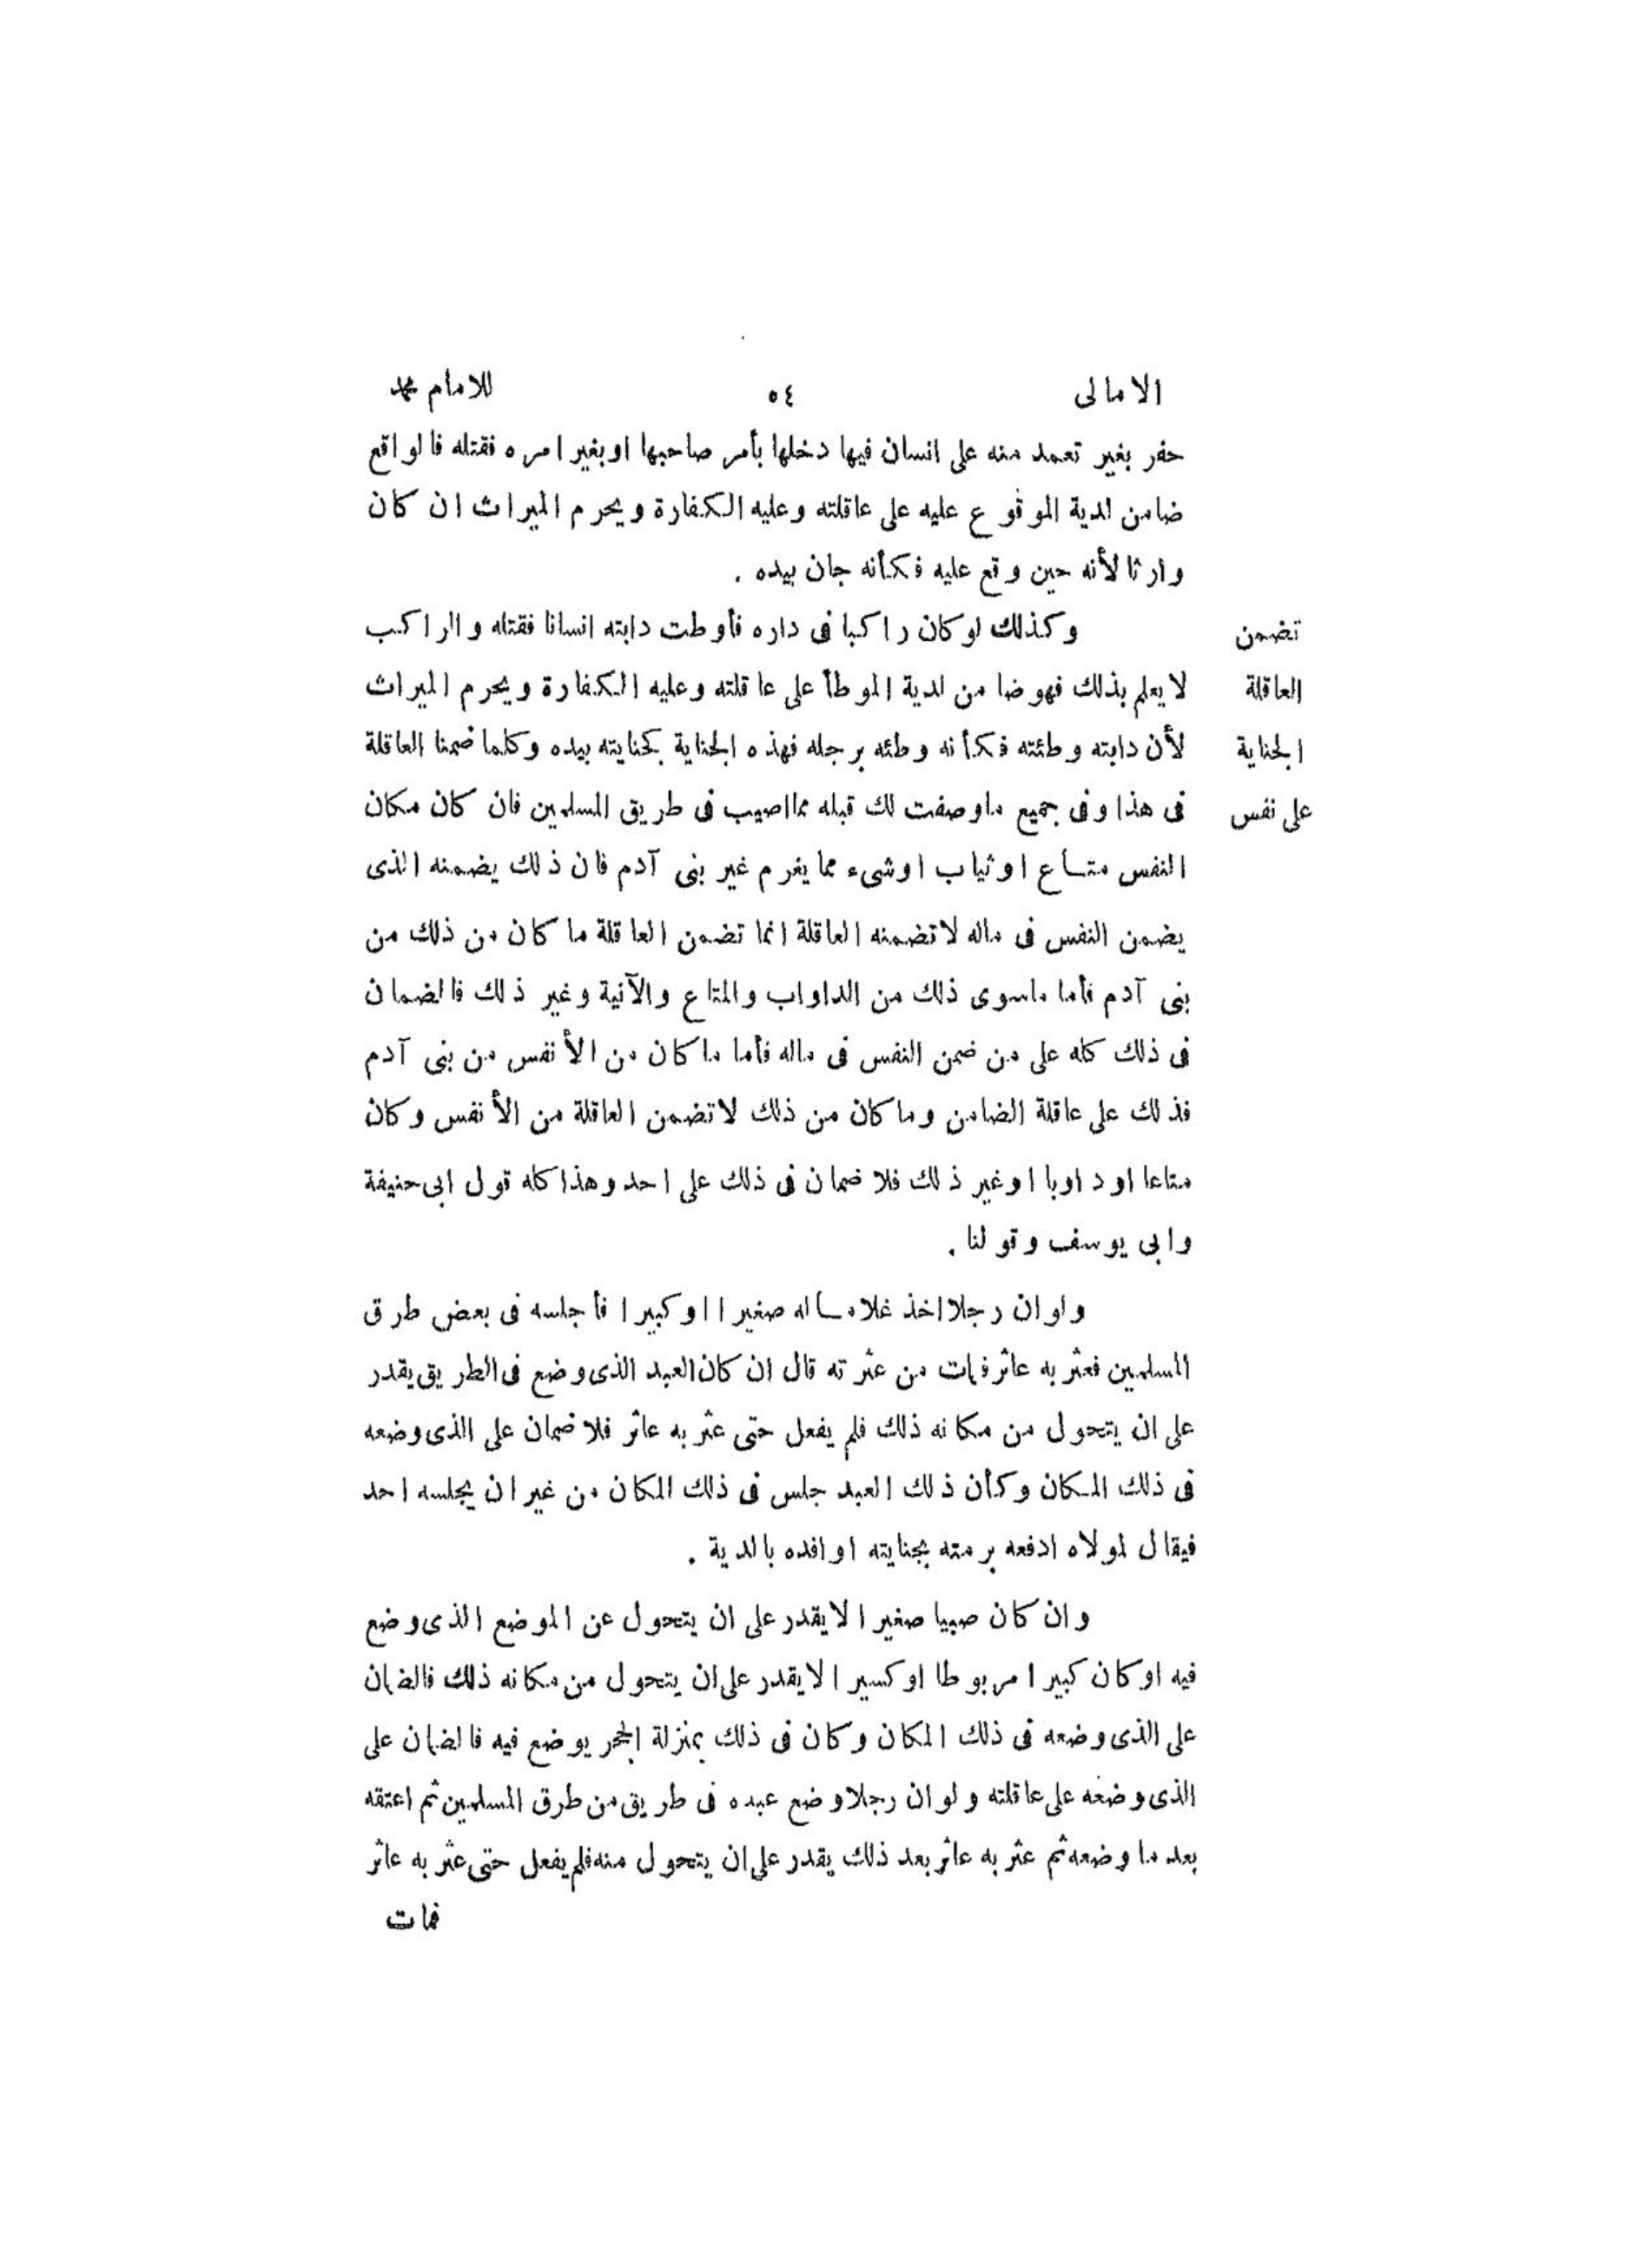 الامالى ٥٤ للامام محمد
حفر بغير تعمد منه على انسان فيها دخلها بأمر صاحبها او بغير امره فقتله فالواقع
ضامن لدية الموقوع عليه على عاقلته وعليه الكفارة ويحرم الميراث ان كان
وارثا لأنه حين وقع عليه فكأنه جان بيده .
وكذلك لو كان راكبا فى داره فأوطت دابته انسانا فقتله والراكب
تضمن
لا يعلم بذلك فهو ضامن لدية الموطأ على عاقلته وعليه الكفارة ويحرم الميراث
العاقلة
لأن دابته وطئته فكأنه وطئه برجله فهذه الجناية كجنايته بيده وكلما ضمنا العاقلة
الجناية
فى هذا وفى جميع ما وصفت لك قبله مما اصيب فى طريق المسلمين فان كان مكان
على نفس
النفس متاع او ثياب او شىء مما يغرم غير بنى آدم فان ذلك يضمنه الذى
يضمن النفس فى ماله لا تضمنه العاقلة انما تضمن العاقلة ما كان من ذلك من
بنى آدم فأما ما سوى ذلك من الداواب والمتاع والآنية وغير ذلك فالضمان
فى ذلك كله على من ضمن النفس فى ماله فأما ما كان من الأنفس من بنى آدم
فذلك على عاقلة الضامن وما كان من ذلك لا تضمن العاقلة من الأنفس وكان
متاعا او داوبا او غير ذلك فلا ضمان فى ذلك على احد وهذا كله قول ابى حنيفة
وابى يوسف وقولنا .
ولو ان رجلا اخذ غلاما له صغيرا او كبيرا فأجلسه فى بعض طرق
المسلمين فعثر به عاثر فمات من عثرته قال ان كان العبد الذى وضع فى الطريق يقدر
على ان يتحول من مكانه ذلك فلم يفعل حتى عثر به عاثر فلا ضمان على الذى وضعه
فى ذلك المكان وكأن ذلك العبد جلس فى ذلك المكان من غير ان يجلسه احد
فيقال لمولاه ادفعه برمته بجنايته او افده بالدية .
وان كان صبيا صغيرا لا يقدر على ان يتحول عن الموضع الذى وضع
فيه او كان كبيرا مربوطا او كسيرا لا يقدر على ان يتحول من مكانه ذلك فالضمان
على الذى وضعه فى ذلك المكان وكان فى ذلك بمنزلة الحجر يوضع فيه فالضمان على
الذى وضعه على عاقلته ولو ان رجلا وضع عبده فى طريق من طرق المسلمين ثم اعتقه
بعد ما وضعه ثم عثر به عاثر بعد ذلك يقدر على ان يتحول منه فلم يفعل حتى عثر به عاثر
فمات